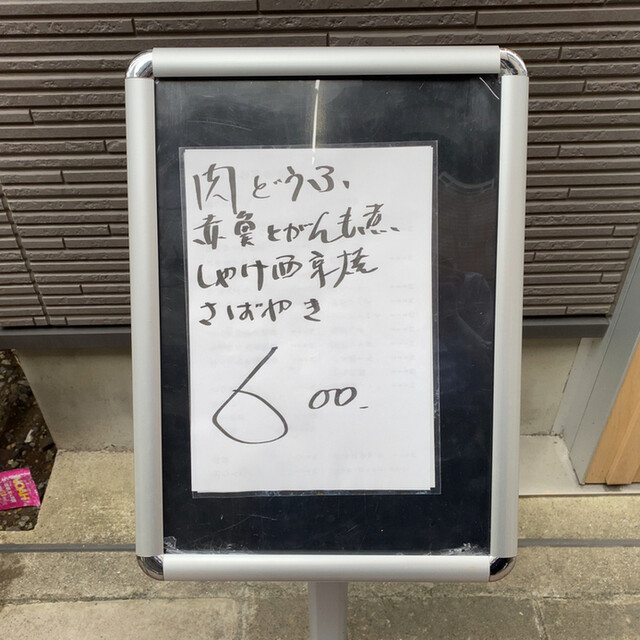 肉どうふ、
赤魚とがんも煮、
しゃけ西京焼
さばやき
600-